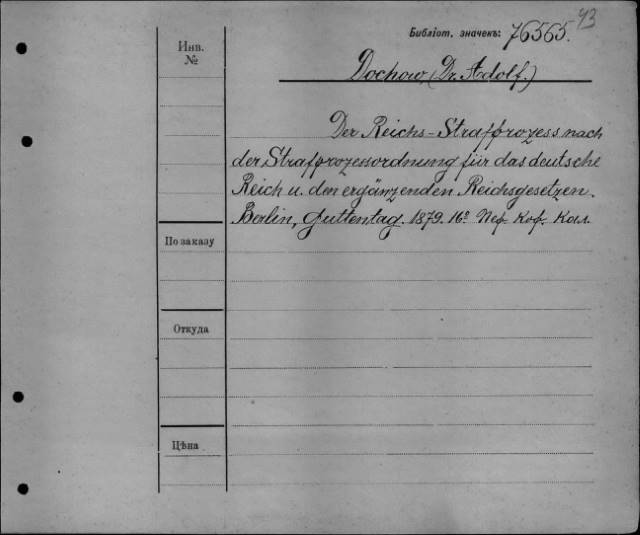 43
Библіот. значекъ: 76565.
Инв.
№
Dochow, (Dr. Adolf.)
Der Reichs-Strafprozess nach
der Strafprozessordnung für das deutsche
Reich u. den ergänzenden Reichsgesetzen.
Berlin, Guttentag. 1879. 16º
По заказу
Откуда
Цѣна